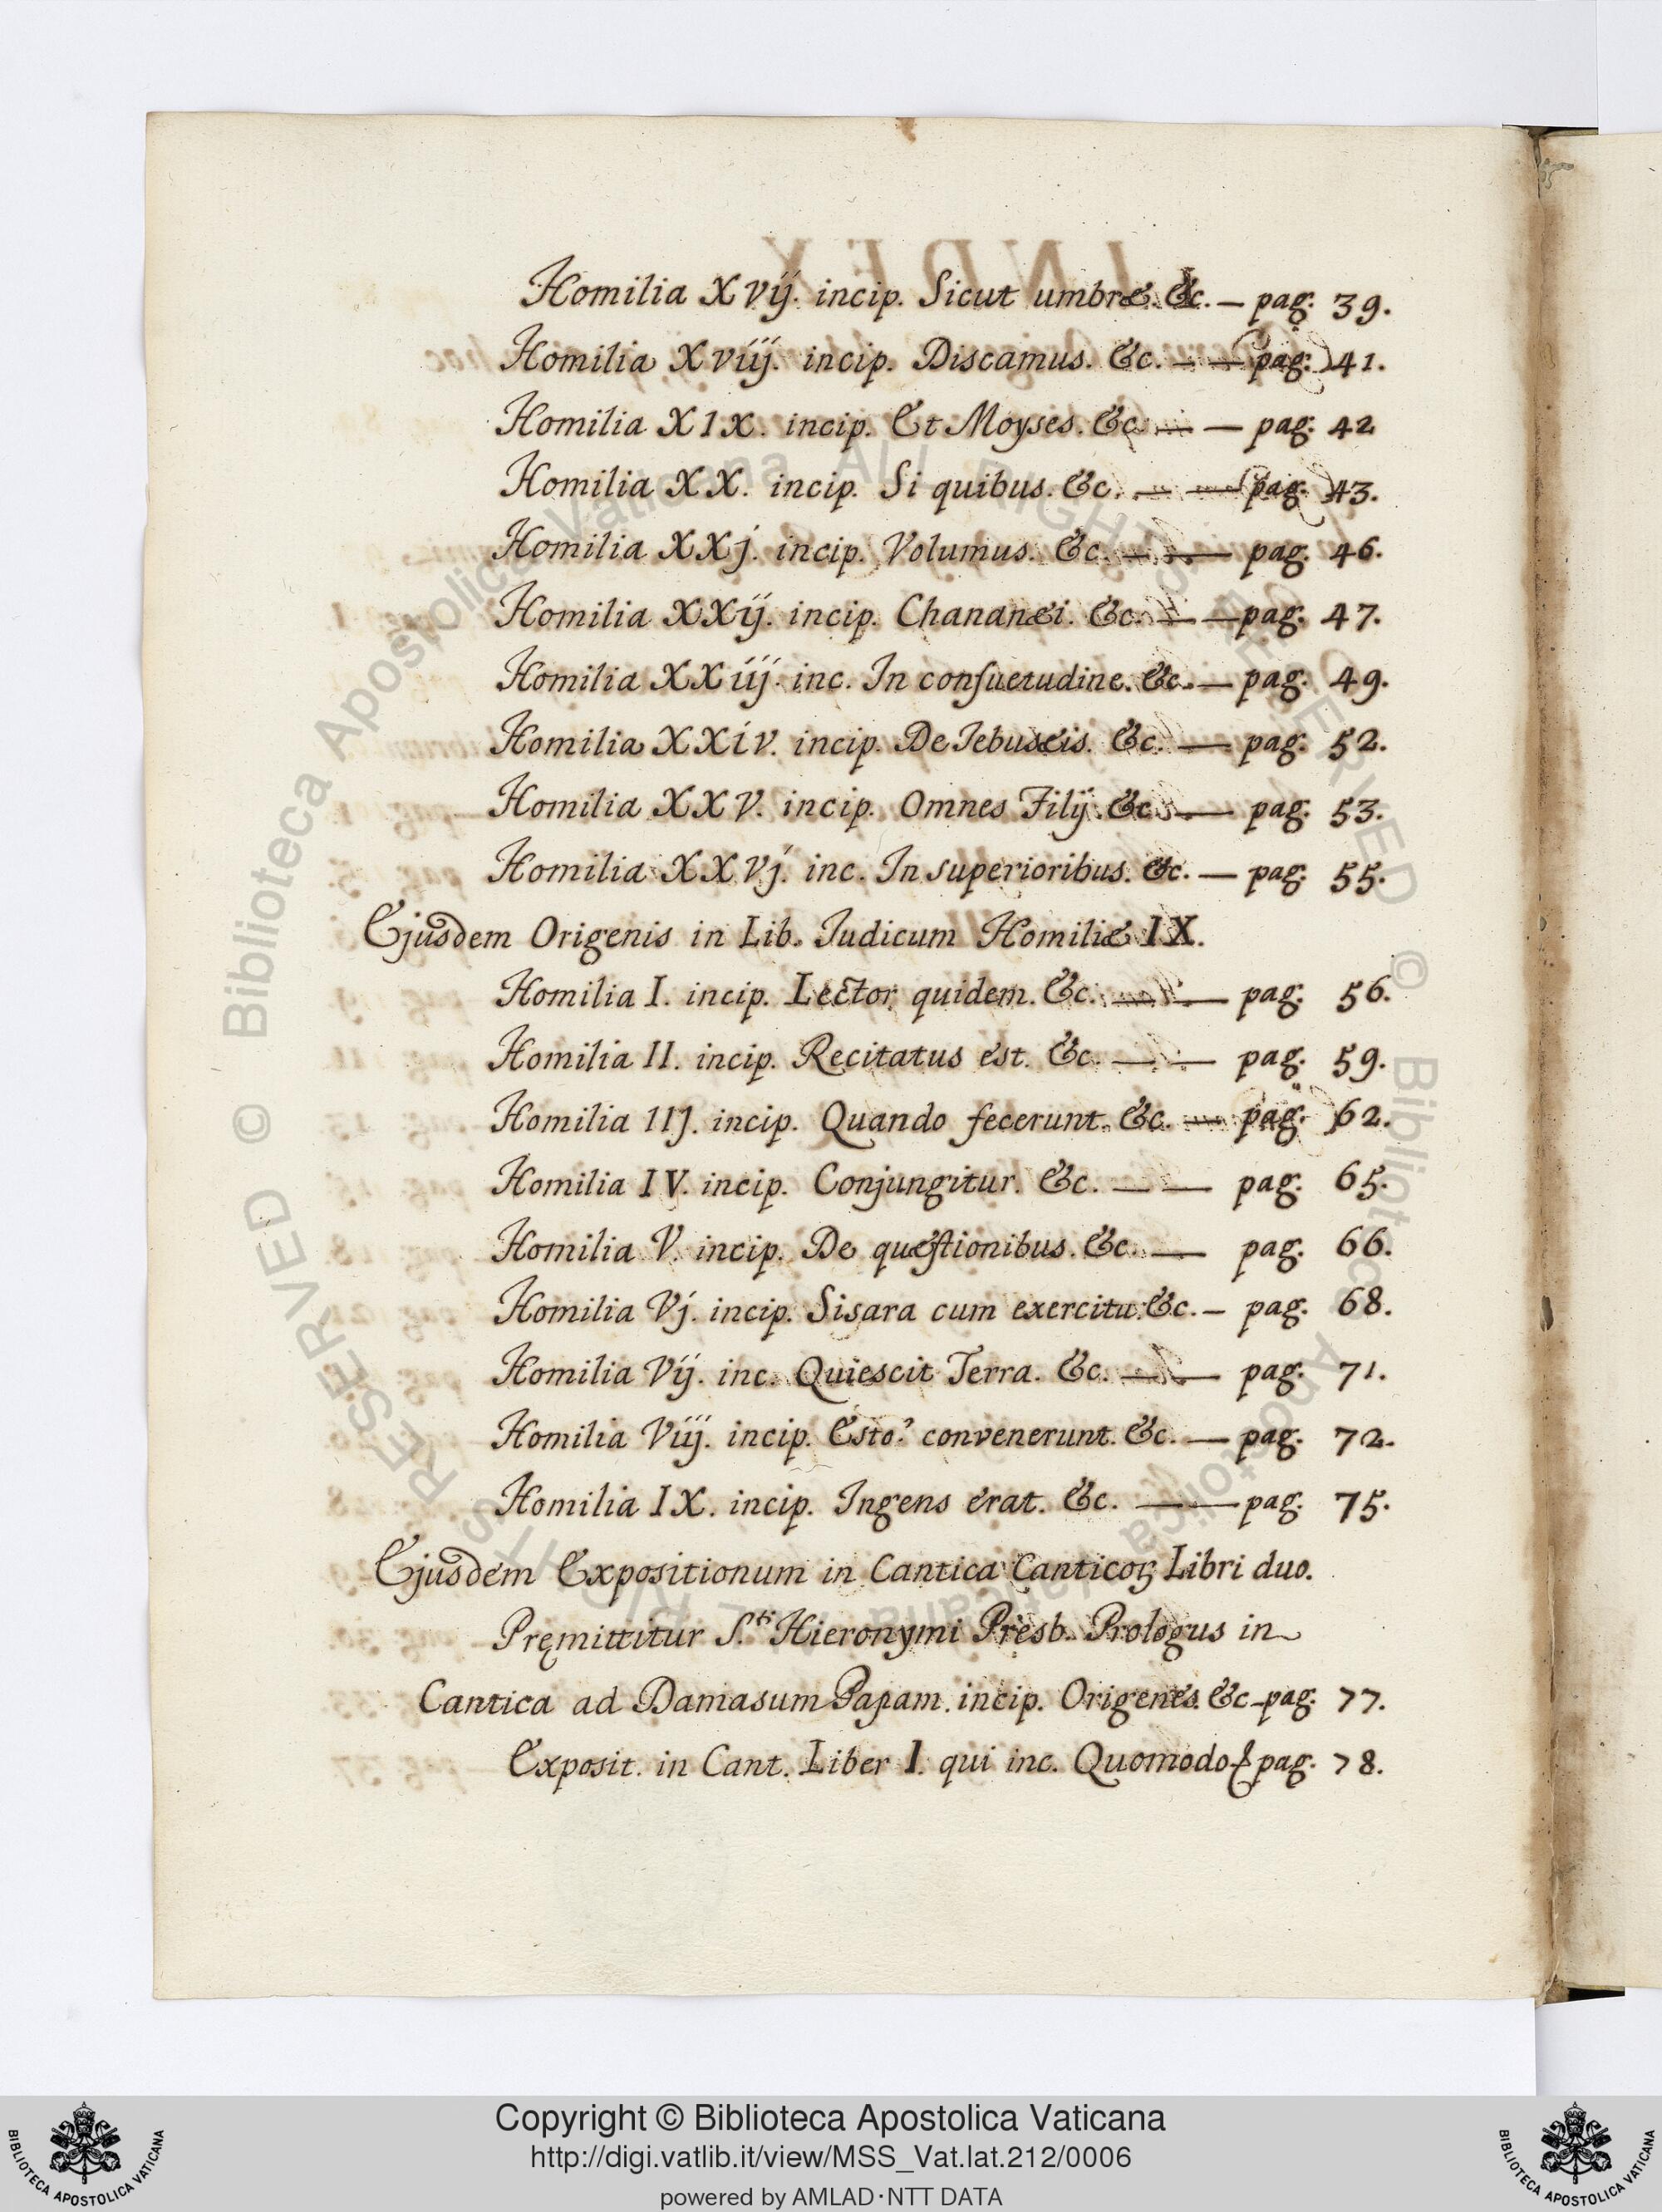 Homilia XVij. incip. Sicut umbræ. &c. — pag. 39.
Homilia Xviij. incip. Discamus. &c. — — pag. 41.
Homilia XIX. incip. Et Moyses. &c. — — pag. 42
Homilia XX. incip. Si quibus. &c. — — pag. 43.
Homilia XXj. incip. Volumus. &c. — — pag. 46.
Homilia XXij. incip. Chananæi. &c. — — pag. 47.
Homilia XXiij. inc. In consuetudine. &c. — pag. 49.
Homilia XXiv. incip. De Iebusæis. &c. — pag. 52.
Homilia XXV. incip. Omnes Filij. &c. — pag. 53.
Homilia XXVj. inc. In superioribus. &c. — pag. 55.
Ejusdem Origenis in Lib. Iudicum Homiliæ IX.
Homilia I. incip. Lector quidem. &c. — — pag. 56.
Homilia II. incip. Recitatus est. &c. — — pag. 59.
Homilia IIJ. incip. Quando fecerunt. &c. — pag. 62.
Homilia IV. incip. Conjungitur. &c. — — pag. 65.
Homilia V. incip. De quæstionibus. &c. — pag. 66.
Homilia Vj. incip. Sisara cum exercitu. &c. — pag. 68.
Homilia Vij. inc. Quiescit Terra. &c. — — pag. 71.
Homilia Viij. incip. Esto? convenerunt. &c. — pag. 72.
Homilia IX. incip. Ingens erat. &c. — — pag. 75.
Ejusdem Expositionum in Cantica Canticoꝝ Libri duo.
Pręmittitur S.ti Hieronymi Presb. Prologus in
Cantica ad Damasum Papam. incip. Origenes. &c — pag. 77.
Exposit. in Cant. Liber I. qui inc. Quomodo & pag. 78.
© Biblioteca Apostolica Vaticana ALL RIGHTS RESERVED
© Biblioteca Apostolica Vaticana ALL RIGHTS RESERVED
Copyright © Biblioteca Apostolica Vaticana
http://digi.vatlib.it/view/MSS_Vat.lat.212/0006
powered by AMLAD·NTT DATA
BIBLIOTECA APOSTOLICA VATICANA
BIBLIOTECA APOSTOLICA VATICANA